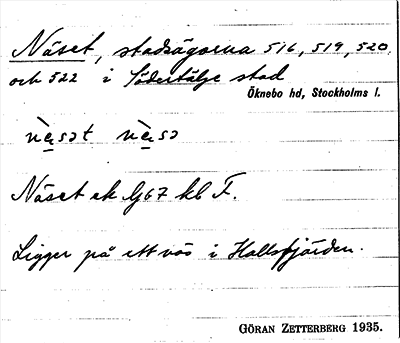 Näset, stadsägorna 516, 519, 520
och 522 i Södertälje stad
Öknebo hd, Stockholms l.
nä̀sət nä̀sə
Näset ek Gj67 kbl F.
Ligger på ett näs i Hallsfjärden.
GÖRAN ZETTERBERG 1935.